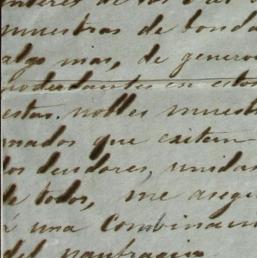 interes de los
muestras de bonda
algo mas, de genero
poderdantes en estos
estas nobles muest
mados que exitan
los deudores, unidas
de todos, me asegu
á una combinacio
del naufragio